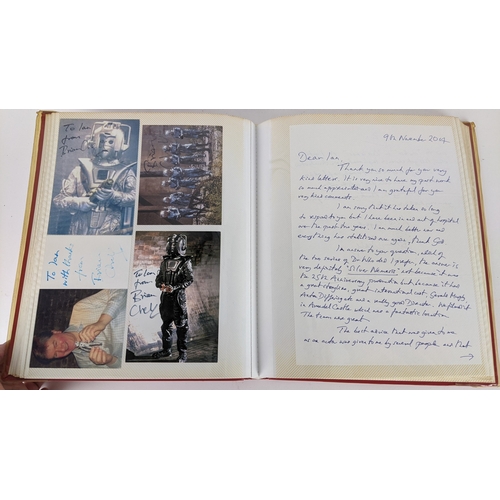 To Ian
from
Brian
To Ian
with thanks
from
To Ian
from
Brian
9th November 2007
Dear Ian,
Thank you so much for your very
kind letter. It is very nice to have my past work
so much appreciated and I am grateful for your
very kind comments.
I am sorry that it has taken so long
to respond to you but I have been in and out of hospital
over the past few years. I am much better now and
everything has stabilized once again, thank God
In answer to your question, which of
the two stories of Dr Who did I prefer, the answer is
very definitely "Silver Nemesis" not because it was
the 25th Anniversary production but because it had
a great storyline, great international cast,
Anton Diffring was a really good
in Arundel Castle which was a fantastic location.
The team was great.
The best advice that was given to me
as an actor was given to me by several people and that